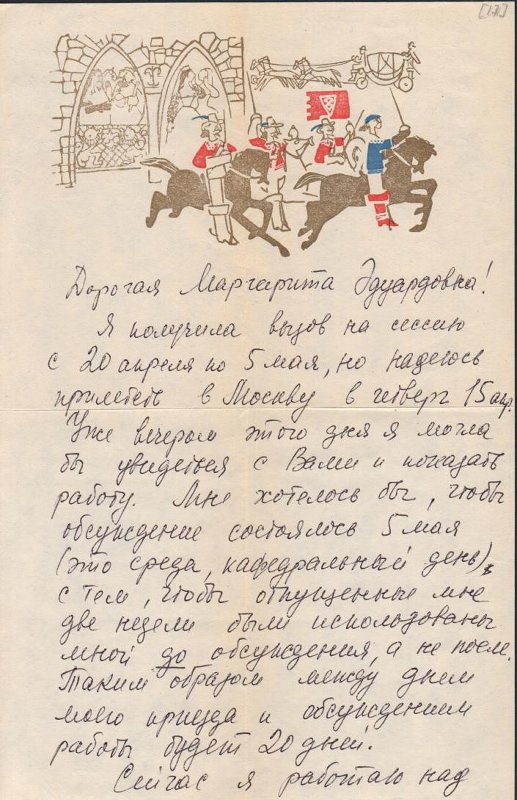 Дорогая Маргарита Эдуардовна!
Я получила вызов на сессию
с 20 апреля по 5 мая, но надеюсь
прилететь в Москву в четверг 15 апр.
Уже вечером этого дня я могла
бы увидеться с Вами и показать
работу. Мне хотелось бы, чтобы
обсуждение состоялось 5 мая
(это среда, кафедральный день),
с тем, чтобы отпущенные мне
две недели были использованы
мной до обсуждения, а не после.
Таким образом между днем
моего приезда и обсуждением
работы будет 20 дней.
Сейчас я работаю над